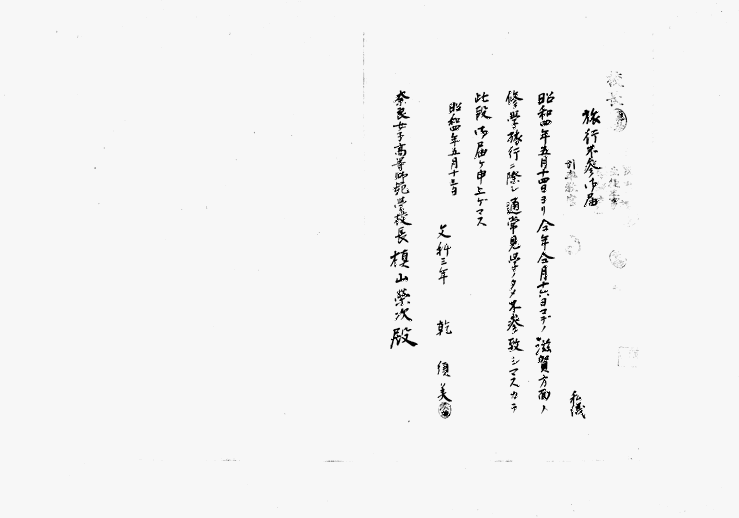 校長
旅行不参御届
引率教官
私儀
昭和四年五月十四日ヨリ仝年仝月十六日マデノ滋賀方面ヘ
修学旅行ニ際シ通常見学ノタメ不参致シマスカラ
此段御届ケ申上ゲマス
昭和四年五月十三日
文科三年 乾 須美
奈良女子高等師範学校長 槙山榮次殿